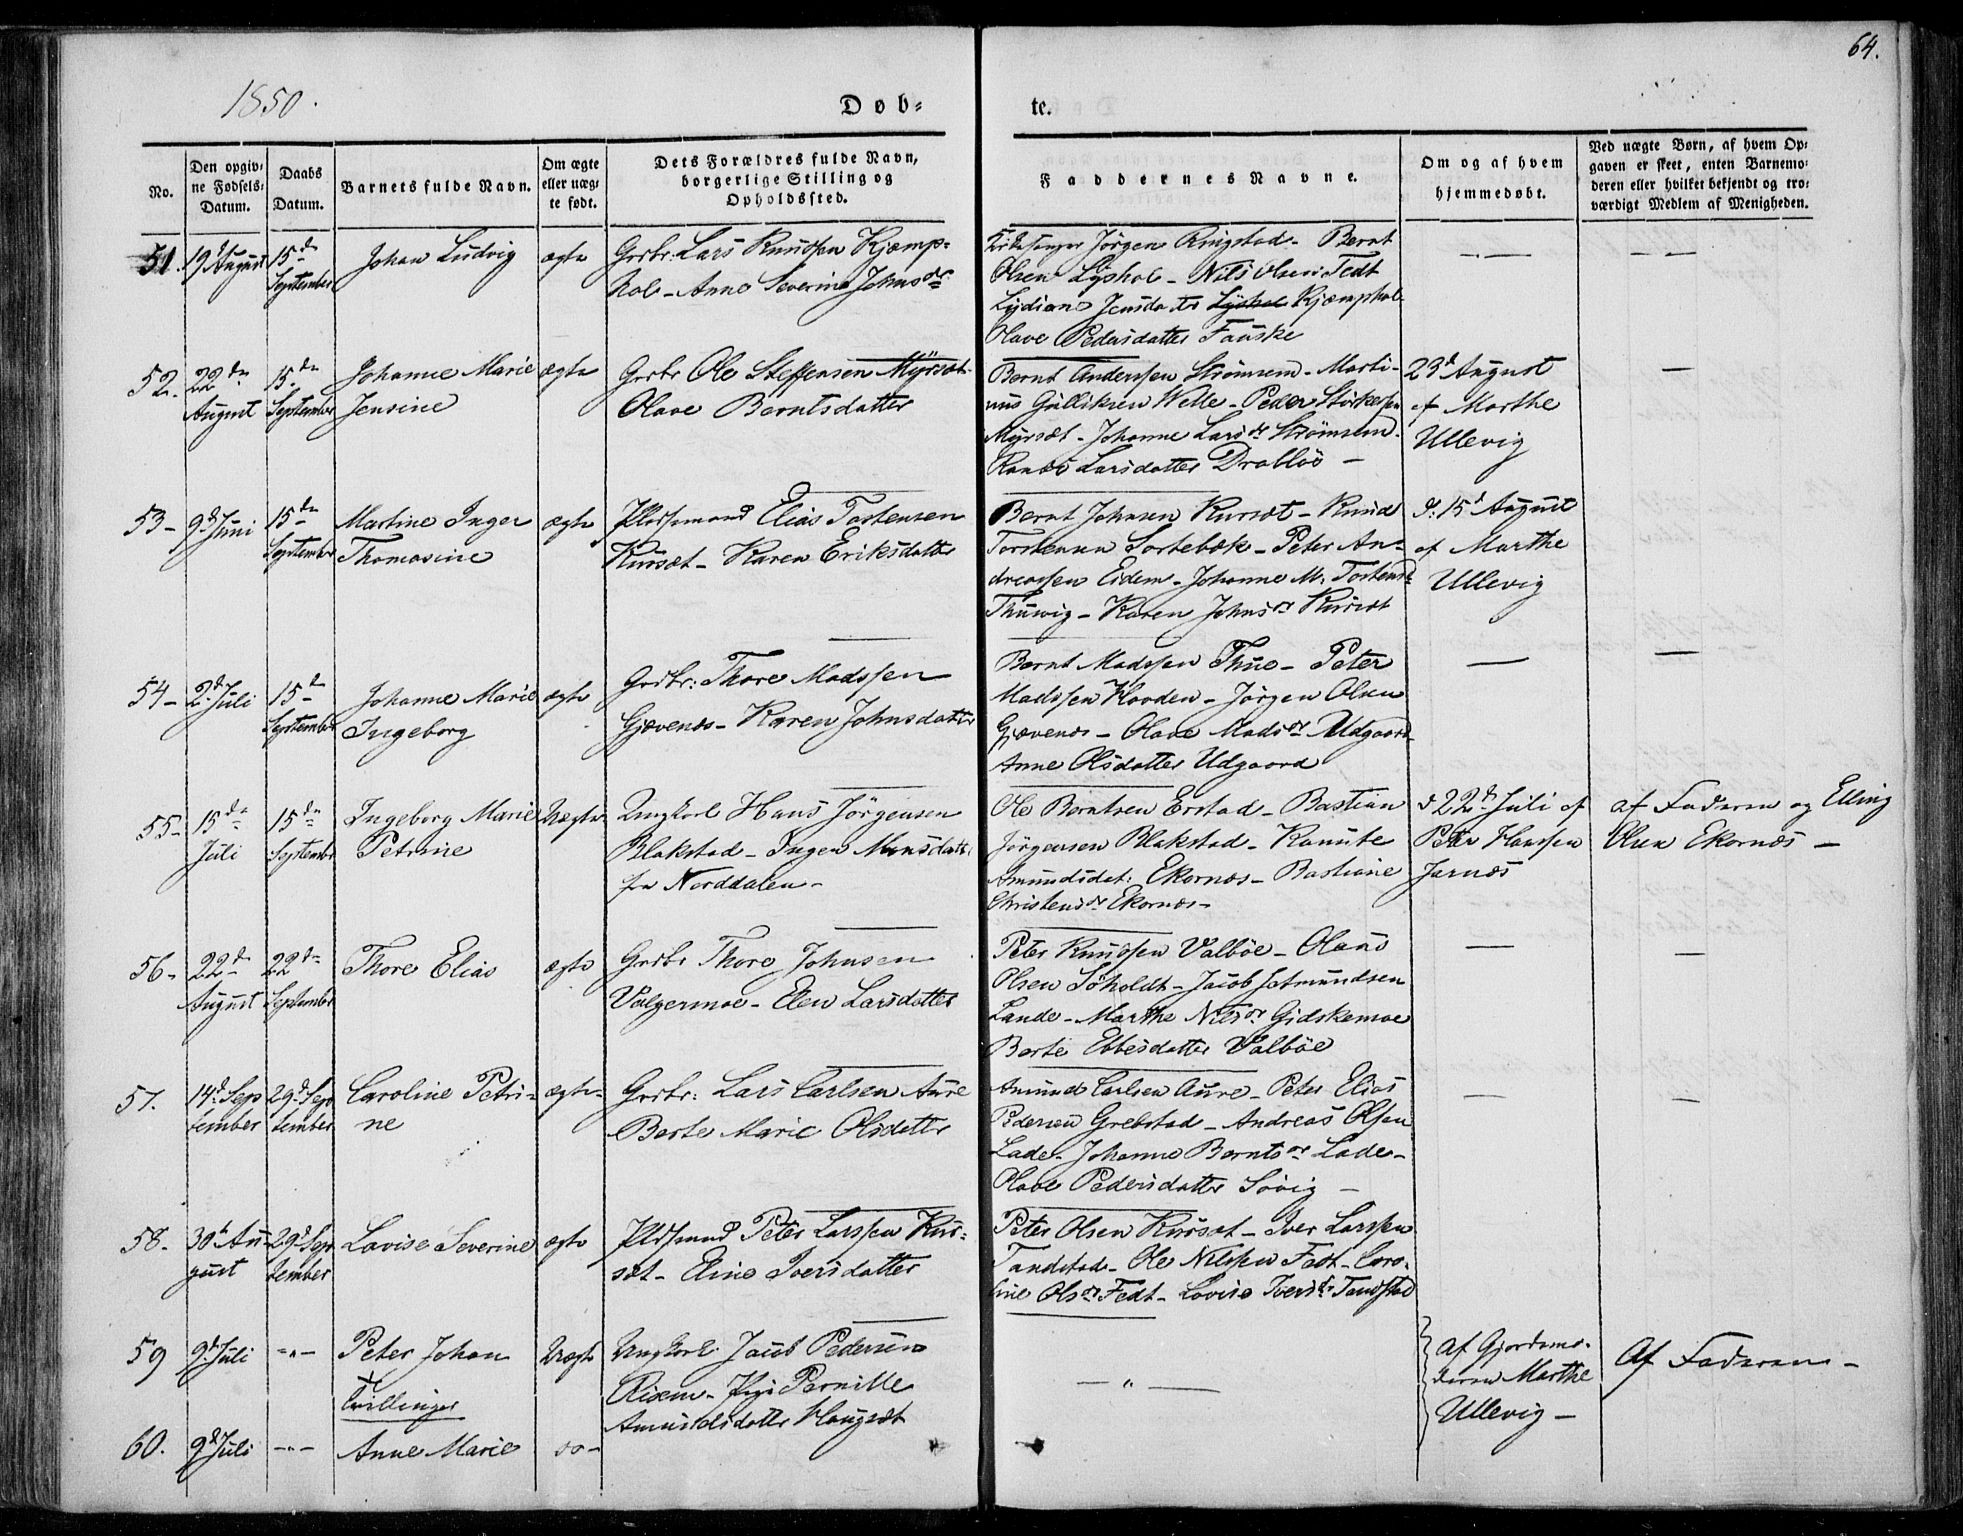 64.
1850.
Døb-
te.
No.
Den opgiv-
ne Fødsels-
Datum.
Daabs
Datum.
Barnets fulde Navn.
Om ægte
eller uæg-
te født.
Dets Forældres fulde Navn,
borgerlige Stilling og
Opholdssted.
Faddernes Navne.
Om og af hvem
hjemmedøbt.
Ved uægte Børn, af hvem Op-
gaven er skeet, enten Barnemo-
deren eller hvilket bekjendt og tro-
værdigt Medlem af Menigheden.
51. 19d August
15de September
Johan Ludvig
ægte
Grdbr: Lars Knudsen Kjæmp-
hol - Anne Severine Johnsdr
Kirkesanger Jörgen Ringstad - Bernt
Olsen Lyshol - Nils Olsen Fedt
Lydiane Jensdatter Lyshol Kjæmphol
Olave Pedersdatter Fauske
52. 22de August
15de September
Johanne Marie
Jensine
ægte
Grdbr Ole Steffensen Myrsæt -
Olave Berntsdatter
Bernt Anderssen Strömsem - Marti-
nus Gulliksen Welle - Peder
Myrsæt - Johanne Larsdr Strömsem -
Larsdatter Drabløs -
23d August
af Marthe
Ullevig
53 - 9d Juni
15de September
Martine Inger
Thomasine
ægte
Pladsmand Elias Tostensen
Kursæt - Karen Eriksdatter
Bernt Johnsen Kursæt - Knud
Torstensen Sortebæk - Peter An-
dreassen Eidem - Johanne M. Tostensd
Thuvig - Karen Johnsdr Kursæt
d: 15d August
af Marthe
Ullevig
54 - 2d Juli
15d September
Johanne Marie
Ingeborg
ægte
Grdbr: Thore Madssen
Gjævenes - Karen Johnsdatter
Bernt Madssen Thue - Peter
Madssen Hovden - Jörgen Olsen
Gjævenes - Olave Madsdr Udgaard
Anne Olsdatter Udgaard
55 - 15de Juli
15de September
Ingeborg Marie
Petrine
Uægte
Ungkarl Hans Jörgensen
Blakstad - Inger Monsdatter
fra Norddalen -
Ole Berntsen Erstad - Bastian
Jörgensen Blakstad - Kanute
Amundsdat: Ekornæs - Bastiane
Christensdr Ekornæs -
d 22d Juli af
Peter Hanssen
Jarnæs
af Faderen og Elling
Olsen Ekornæs -
56 - 22d August
22de September
Thore Elias
ægte
Grdbr Thore Johnsen
Valgermoe - Elen Larsdatter
Peter Knudssen Valböe - Olaus
Olsen Söholdt - Jacob Jetmundsen
Lande - Marthe Nilsdr Gidskemoe
Berte Ebbesdatter Valböe
57. 14d Sep
tember
29d Sep
tember
Caroline Petri-
ne
ægte -
Grdbr: Lars Carlsen Aure
Berte Marie Olsdatter
Amund Carlsen Aure - Peter Elias
Pedersen Grebstad - Andreas Olsen
Lade - Johanne Berntsdr Lade -
Olave Pedersdatter Søvig -
58 - 30te Au-
gust
29d Sep
tember
Lovise Severine
ægte
Pladsmand Peter Larssen Kur-
sæt - Eline Iversdatter
Peter Olsen Kursæt - Iver Larssen
Tandstad - Ole Nilssen Fedt - Caro-
line Olsdr Fedt - Lovise Iversdr Tandstad
59 9d Juli
-"-
Peter Johan
Tvillinger
Uægte
Ungkarl Jacob Pedersen
Risem - Pige Pernille
Amundsdatter Haugsæt
- " -
af Gjordemo-
deren Marthe
Ullevig -
Af Faderen -
60. 9d Juli
-"-
Anne Marie
do -